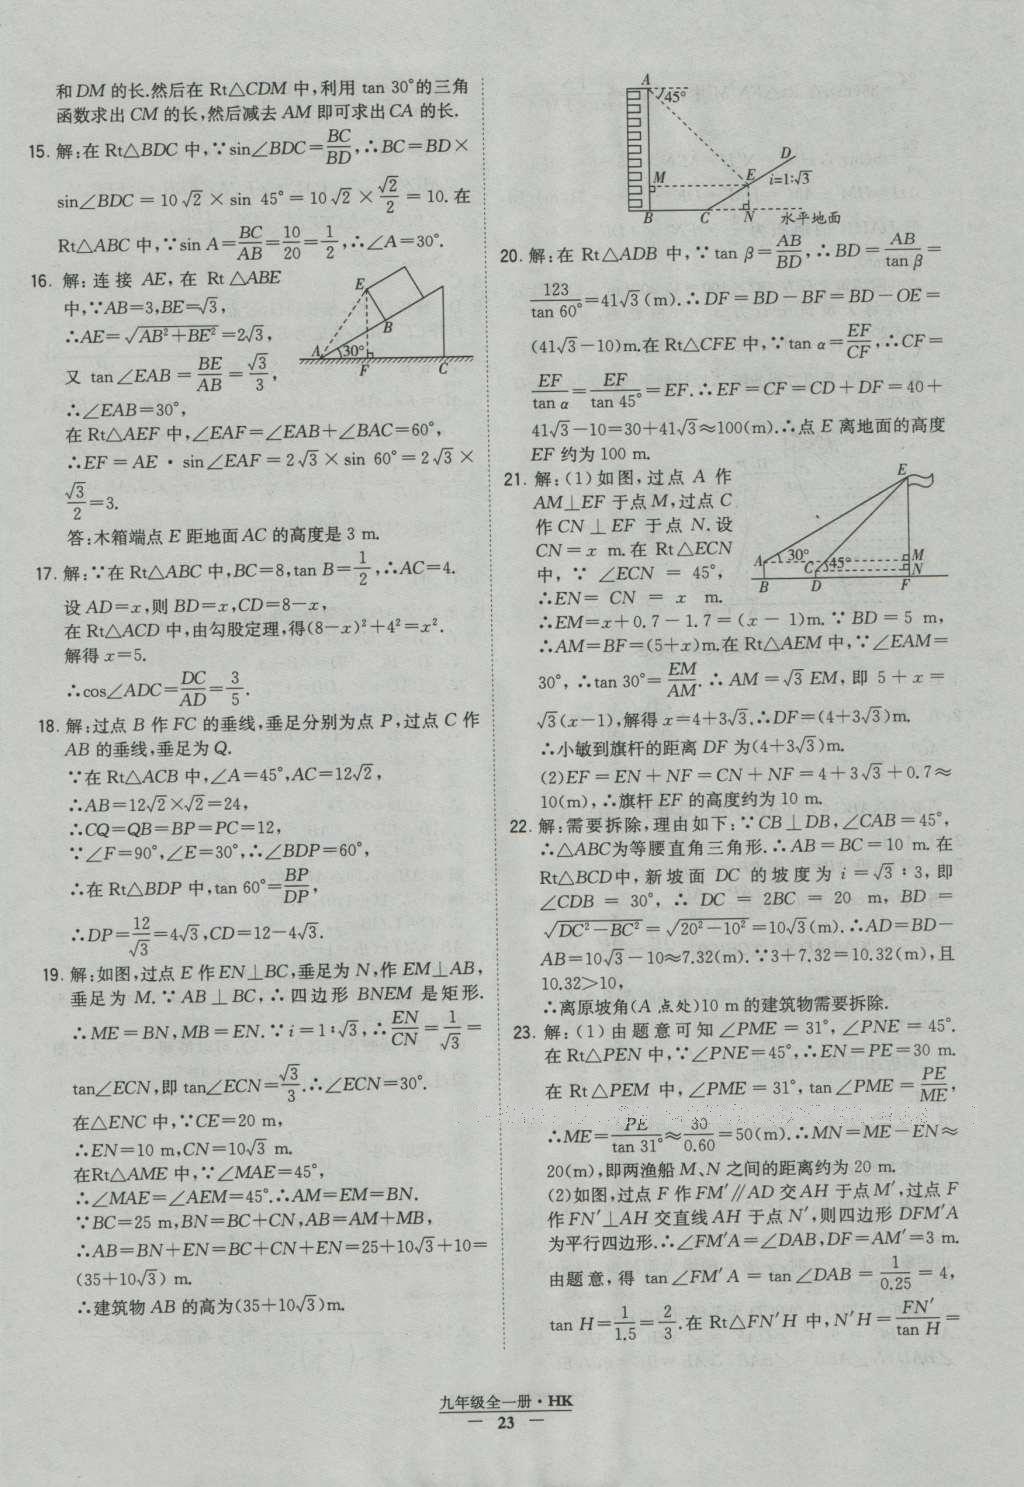 和DM的长.然后在 Rt△CDM 中,利用 tan 30°的三角
函数求出CM的长,然后减去 AM 即可求出CA的长.
15. 解:在 Rt△BDC 中,∵sin∠BDC=BC/BD,∴BC=BD×
sin∠BDC=10√2×sin 45°=10√2×√2/2=10.在
Rt△ABC 中,∵sin A=BC/AB=10/20=1/2,∴∠A=30°.
16. 解:连接 AE,在 Rt△ABE
中,∵AB=3,BE=√3,
∴AE=√(AB²+BE²)=2√3,
又 tan∠EAB=BE/AB=√3/3,
∴∠EAB=30°,
在Rt△AEF 中,∠EAF=∠EAB+∠BAC=60°,
∴EF=AE·sin∠EAF=2√3×sin 60°=2√3×
√3/2=3.
答:木箱端点E距地面AC的高度是3 m.
E
B
A
30°
F
C
17. 解:∵在Rt△ABC中,BC=8,tan B=1/2,∴AC=4.
设AD=x,则BD=x,CD=8-x,
在Rt△ACD中,由勾股定理,得(8-x)²+4²=x².
解得x=5.
∴cos∠ADC=DC/AD=3/5.
18. 解:过点B作FC的垂线,垂足分别为点P,过点C作
AB的垂线,垂足为Q.
∵在Rt△ACB中,∠A=45°,AC=12√2,
∴AB=12√2×√2=24,
∴CQ=QB=BP=PC=12,
∵∠F=90°,∠E=30°,∴∠BDP=60°,
∴在Rt△BDP中,tan 60°=BP/DP,
∴DP=12/√3=4√3,CD=12-4√3.
19. 解:如图,过点E作EN⊥BC,垂足为N,作EM⊥AB,
垂足为M.∵AB⊥BC,∴四边形BNEM是矩形.
∴ME=BN,MB=EN.∵i=1∶√3,∴EN/CN=1/√3=
tan∠ECN,即tan∠ECN=√3/3.∴∠ECN=30°.
在△ENC中,∵CE=20 m,
∴EN=10 m,CN=10√3 m.
在Rt△AME中,∵∠MAE=45°,
∴∠MAE=∠AEM=45°.∴AM=EM=BN.
∵BC=25 m,BN=BC+CN,AB=AM+MB,
∴AB=BN+EN=BC+CN+EN=25+10√3+10=
(35+10√3) m.
∴建筑物AB的高为(35+10√3)m.
A
45°
D
M
E
i=1∶√3
B
C
N
水平地面
20. 解:在 Rt△ADB 中,∵tan β=AB/BD,∴BD=AB/tan β=
123/tan 60°=41√3(m).∴DF=BD-BF=BD-OE=
(41√3-10)m.在Rt△CFE中,∵tan α=EF/CF,∴CF=
EF/tan α=EF/tan 45°=EF.∴EF=CF=CD+DF=40+
41√3-10=30+41√3≈100(m).∴点E离地面的高度
EF约为100 m.
21. 解:(1)如图,过点A作
AM⊥EF于点M,过点C
作CN⊥EF于点N.设
CN=x m.在Rt△ECN
中,∵∠ECN=45°,
∴EN=CN=x m.
E
A
30°
C
45°
M
N
B
D
F
∴EM=x+0.7-1.7=(x-1)m.∵BD=5 m,
∴AM=BF=(5+x)m.在Rt△AEM中,∵∠EAM=
30°,∴tan 30°=EM/AM.∴AM=√3EM,即5+x=
√3(x-1),解得x=4+3√3.∴DF=(4+3√3)m.
∴小敏到旗杆的距离DF为(4+3√3)m.
(2)EF=EN+NF=CN+NF=4+3√3+0.7≈
10(m),∴旗杆EF的高度约为10 m.
22. 解:需要拆除,理由如下:∵CB⊥DB,∠CAB=45°,
∴△ABC为等腰直角三角形.∴AB=BC=10 m.在
Rt△BCD中,新坡面DC的坡度为i=√3∶3,即
∠CDB=30°,∴DC=2BC=20 m,BD=
√(DC²-BC²)=√(20²-10²)=10√3(m).∴AD=BD-
AB=10√3-10≈7.32(m).∵3+7.32=10.32(m),且
10.32>10,
∴离原坡角(A点处)10 m的建筑物需要拆除.
23. 解:(1)由题意可知∠PME=31°,∠PNE=45°.
在Rt△PEN中,∵∠PNE=45°,∴EN=PE=30 m.
在Rt△PEM中,∠PME=31°,tan∠PME=PE/ME,
∴ME=PE/tan 31°≈30/0.60=50(m).∴MN=ME-EN≈
20(m),即两渔船M、N之间的距离约为20 m.
(2)如图,过点F作FM′∥AD交AH于点M′,过点F
作FN′⊥AH交直线AH于点N′,则四边形DFM′A
为平行四边形.∴∠FM′A=∠DAB,DF=AM′=3 m.
由题意,得tan∠FM′A=tan∠DAB=1/0.25=4,
tan H=1/1.5=2/3.在Rt△FN′H中,N′H=FN′/tan H=
九年级全一册·HK
— 23 —